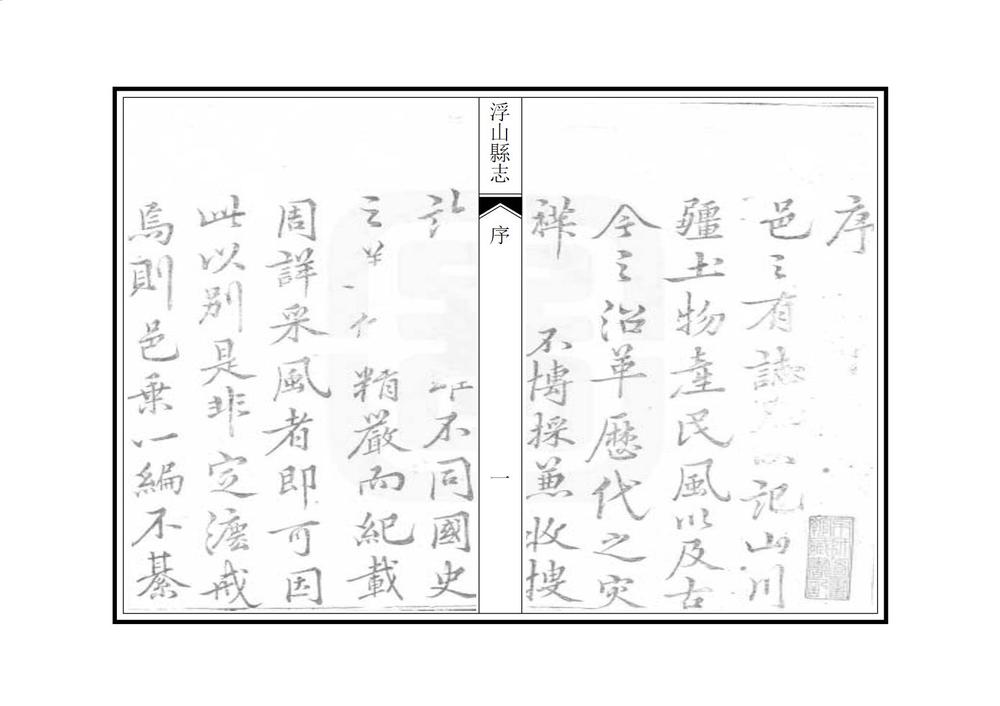 序
邑之有誌 以記山川
疆土物產民風以及古
今之沿革歷代之災
祥 不博採兼收搜

浮山縣志
序
一
不同國史
之 精嚴而紀載
周詳采風者即可因
此以別是非定濃戒
焉則邑乘一編不綦